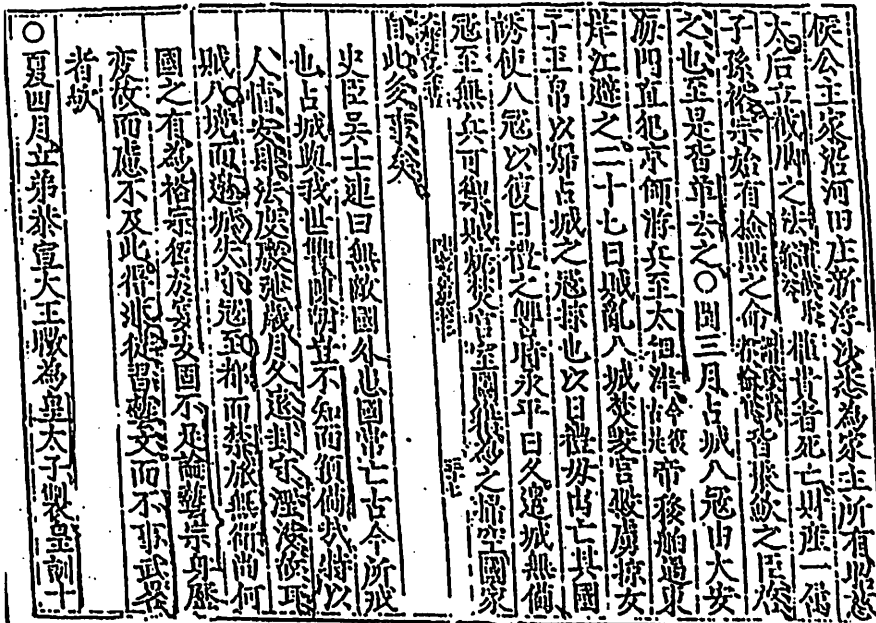 侯公主家沿河田庄新浮沙悉為家主所有昭慈
太后立 之法 權貴者死亡財產一傳
子孫裕宗始有檢點之命 皆聚歛之臣啓
之也至是皆革去之○閏三月占城入寇由大安
海門直犯京師游兵至太祖津 帝移船過東
岸江避之二十七日賊亂入城焚毀宮殿虜掠女
子玉帛以歸占城之寇掠也以日禮母出亡其國
誘使入寇以復日禮之讐時承平日久邊城無備
寇至無兵可禦賊燒焚宮室圖籍為之掃空國家
自此多事矣
史臣吳士連曰無敵國外患國常亡古今所戒
也占城與我世讐陳朝豈不知而預備哉特以
人情安排法度廢弛歲月久遠封守湮没故耳
賊入境而邊城失守寇至都而禁旅無衛尚何
國之有為裕宗極於宴安固不足論藝宗身歷
變故而慮不及此得非徒習藝文而不事武畧
者歟
○夏四月立弟恭宣大王曔為皇太子製皇訓十